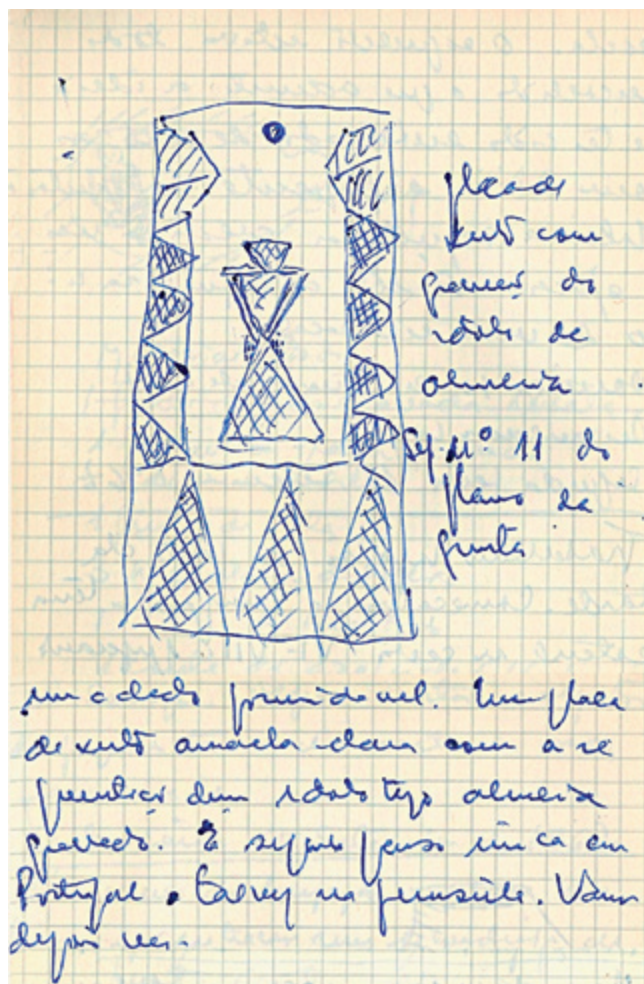 placa de
xisto com
gravação do
idolo de
almeria
Sep. Nº 11 do
plano da
gruta
um achado formidavel. Uma placa
de xisto amarela clara com a re
dum idolo tipo almeria
gravado. É segundo penso unica em
Portugal. Talvez na peninsula. Vamos
depois ver.